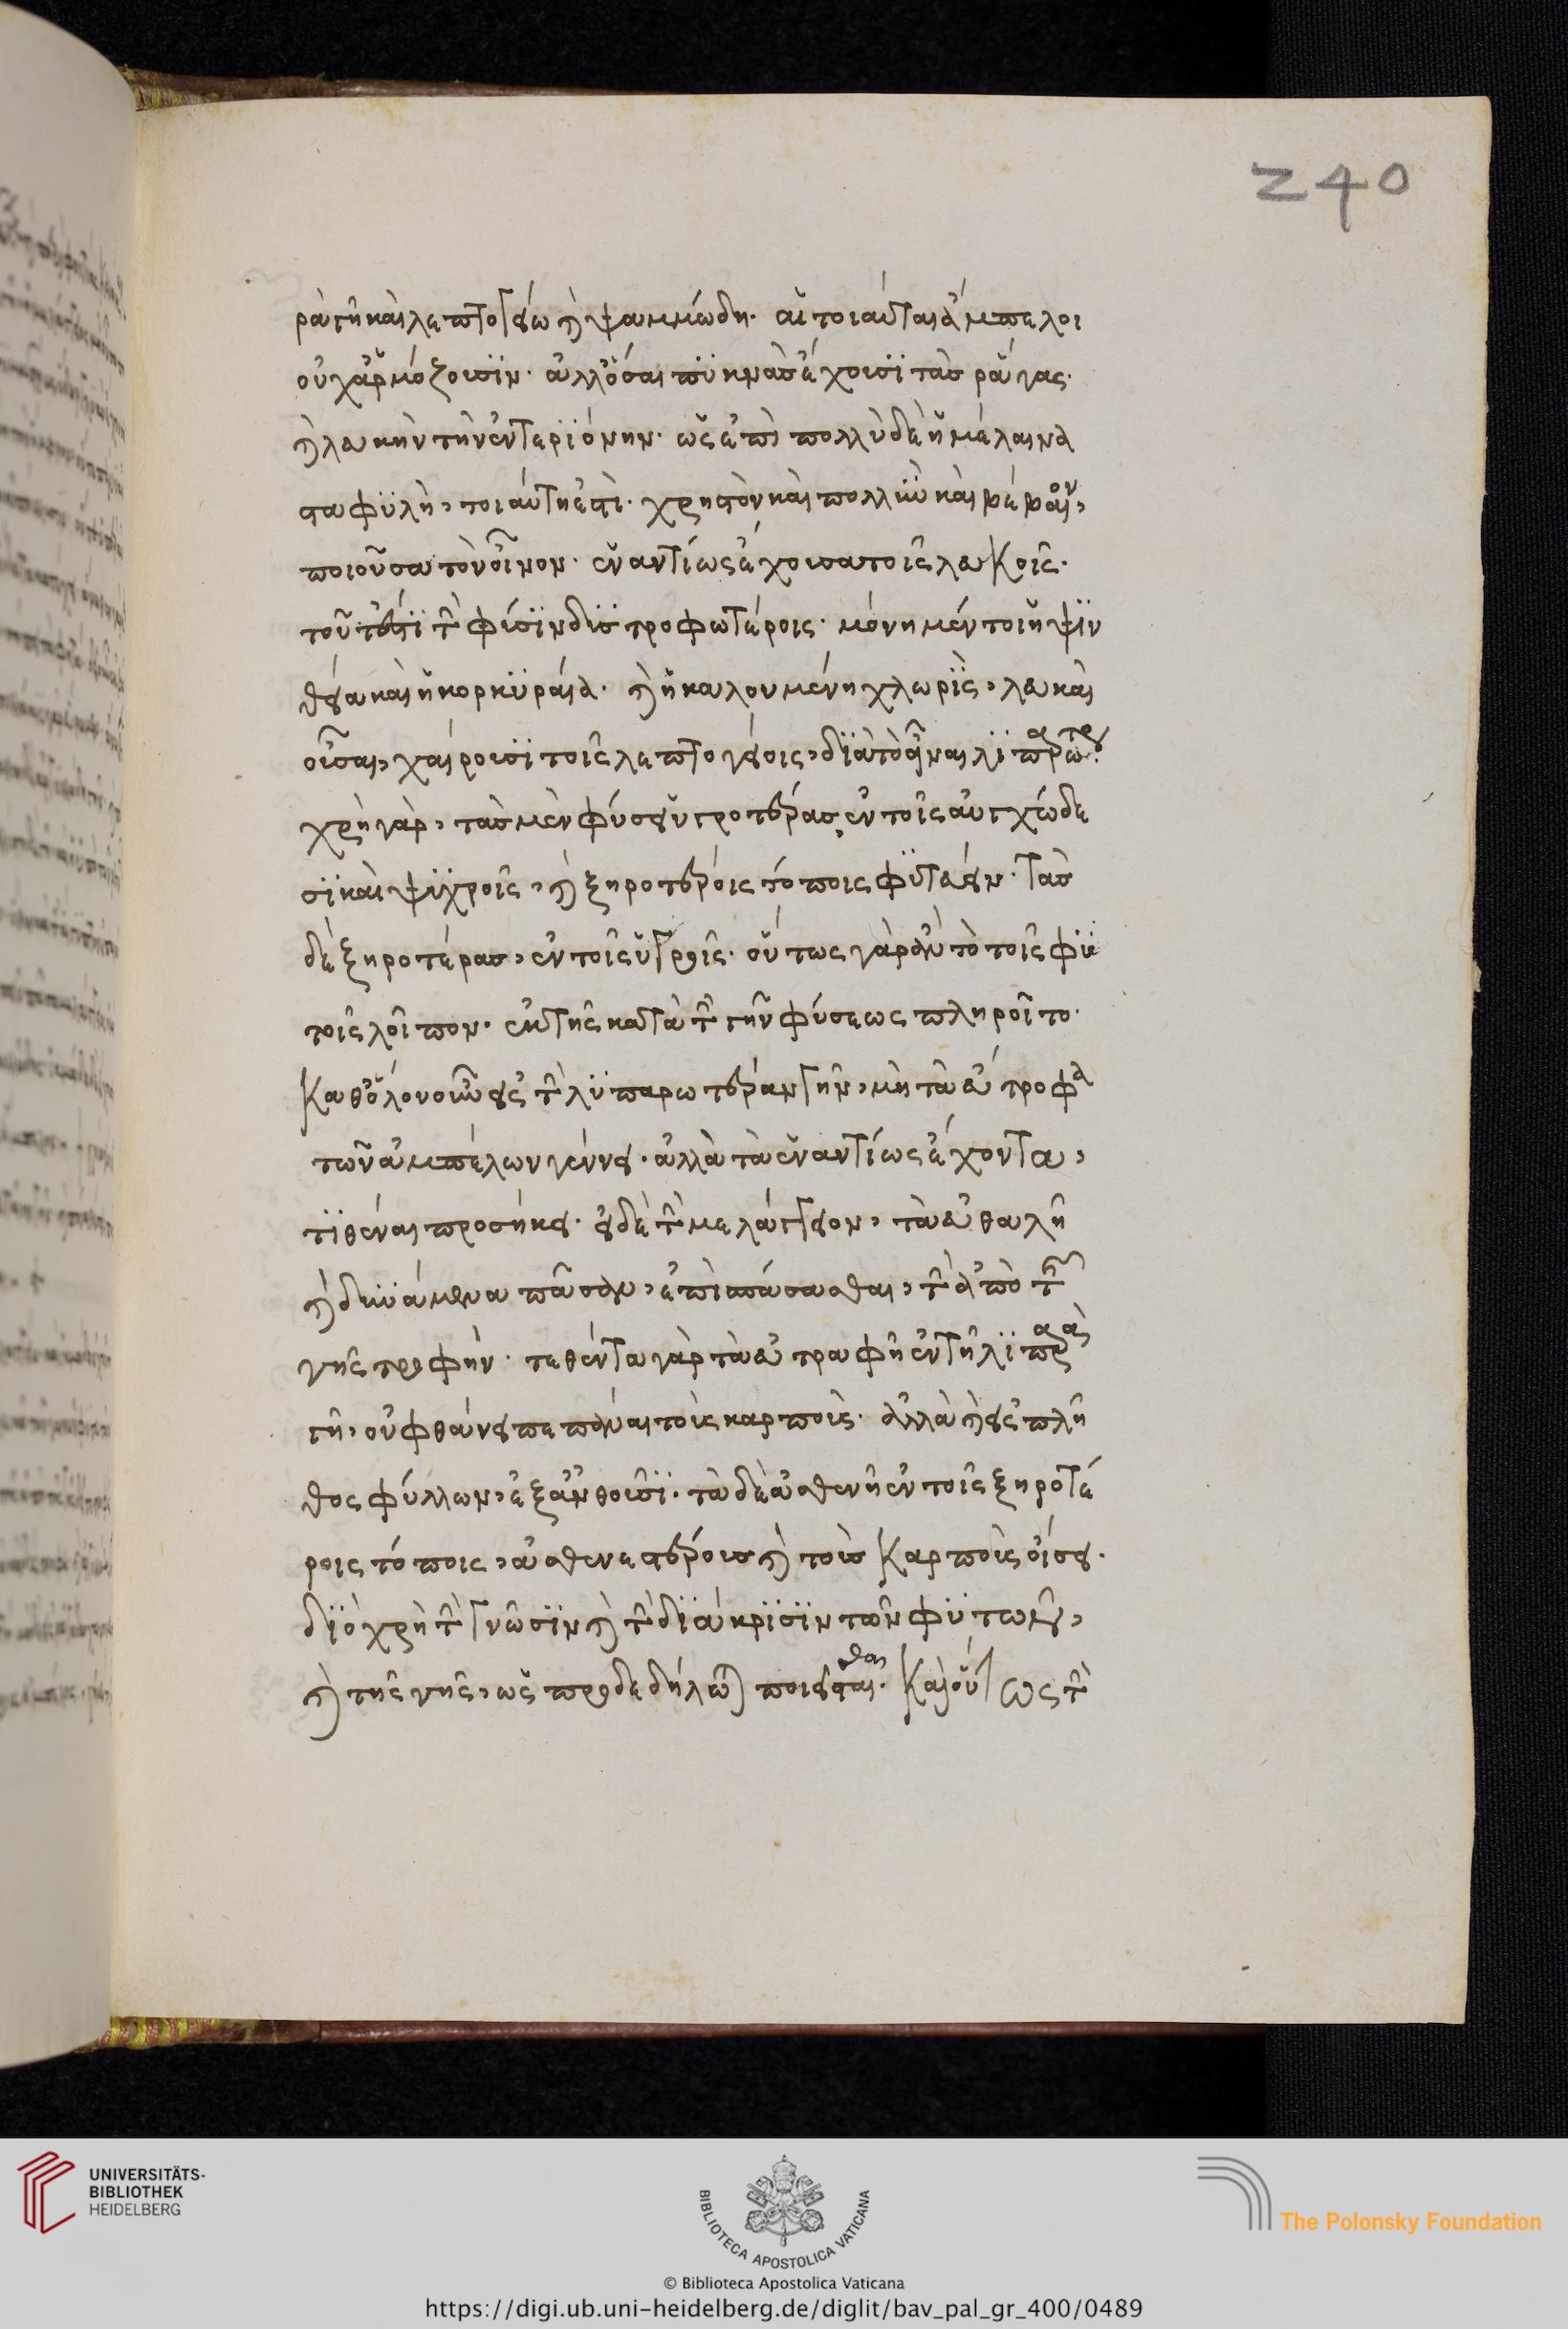 240
ρᾷ γῆ καὶ λεπτογείῳ καὶ ψαμμώδη. αἱ τοιαῦται ἄμπελοι
οὐχ ἁρμόζουσιν. ἀλλ' ὅσαι πυκνὰς ἔχουσι τὰς ῥάγας.
καὶ λευκὴν τὴν ἐντεριόνην. ὡς ἐπὶ πολλὺ δὲ ἡ μέλαινα
σταφυλὴ, τοιαύτη ἐστὶ. χρηστὸν καὶ πολλὺν καὶ βέβαιον,
ποιοῦσα τὸν οἶνον. ἐναντίως ἔχουσα τοῖς λευκοῖς.
τοῦτ' ἔστι τὴν φύσιν δυστροφωτέροις. μόνη μέντοι ἡ ψιν
θεία καὶ ἡ κορκυραία. καὶ ἡ καλουμένη χλωρὶς, λευκαὶ
οὖσαι, χαίρουσι τοῖς λεπτογείοις, διὰ τὸ εἶναι λιπαρώτερ
χρὴ γὰρ, τὰς μὲν φύσει ὑγροτέρας ἐν τοῖς αὐχμώδε
σι καὶ ψυχροῖς, καὶ ξηροτέροις τόποις φυτεύειν. τὰς
δὲ ξηροτέρας, ἐν τοῖς ὑγροῖς. οὕτως γὰρ ἂν τὸ τοῖς φυ
τοῖς λοῖπον. ἐκ τῆς κατὰ τὴν γῆν φύσεως πληροῖτο.
Καθόλου οὖν εἰς τὴν λιπαρωτέραν γῆν, μὴ τὰ εὔτροφα
τῶν ἀμπέλων γένει. ἀλλὰ τὰ ἐναντίως ἔχοντα,
τιθέναι προσήκει. εἰς δὲ τὴν μελάγγειον, τὰ εὐθαλῆ
καὶ δυνάμενα πᾶσαν, ἐπισπάσασθαι, τὴν ἀπὸ τῆς
γῆς τροφήν. τεθέντα γὰρ τὰ εὐτραφῆ ἐν τῆ λιπαρᾷ
γῆ, οὐ φθάνει πεπᾶναι τοῖς καρποῖς. ἀλλὰ καὶ εἰς πλῆ
θος φύλλων, ἐξανθοῦσι. τὰ δὲ ἀσθενῆ ἐν τοῖς ξηροτέ
ροις τόποις, ἀσθενεστέρους καὶ τοὺς Καρποὺς οἴσει.
διὸ χρὴ τὴν γνῶσιν καὶ τὴν διάκρισιν τῶν φυτῶν,
καὶ τῆς γῆς, ὡς προδεδήλωται ποιεῖσθαι. Καὶ οὕτως τὴν
UNIVERSITÄTS-
BIBLIOTHEK
HEIDELBERG
BIBLIOTECA APOSTOLICA VATICANA
The Polonsky Foundation
© Biblioteca Apostolica Vaticana
https://digi.ub.uni-heidelberg.de/diglit/bav_pal_gr_400/0489